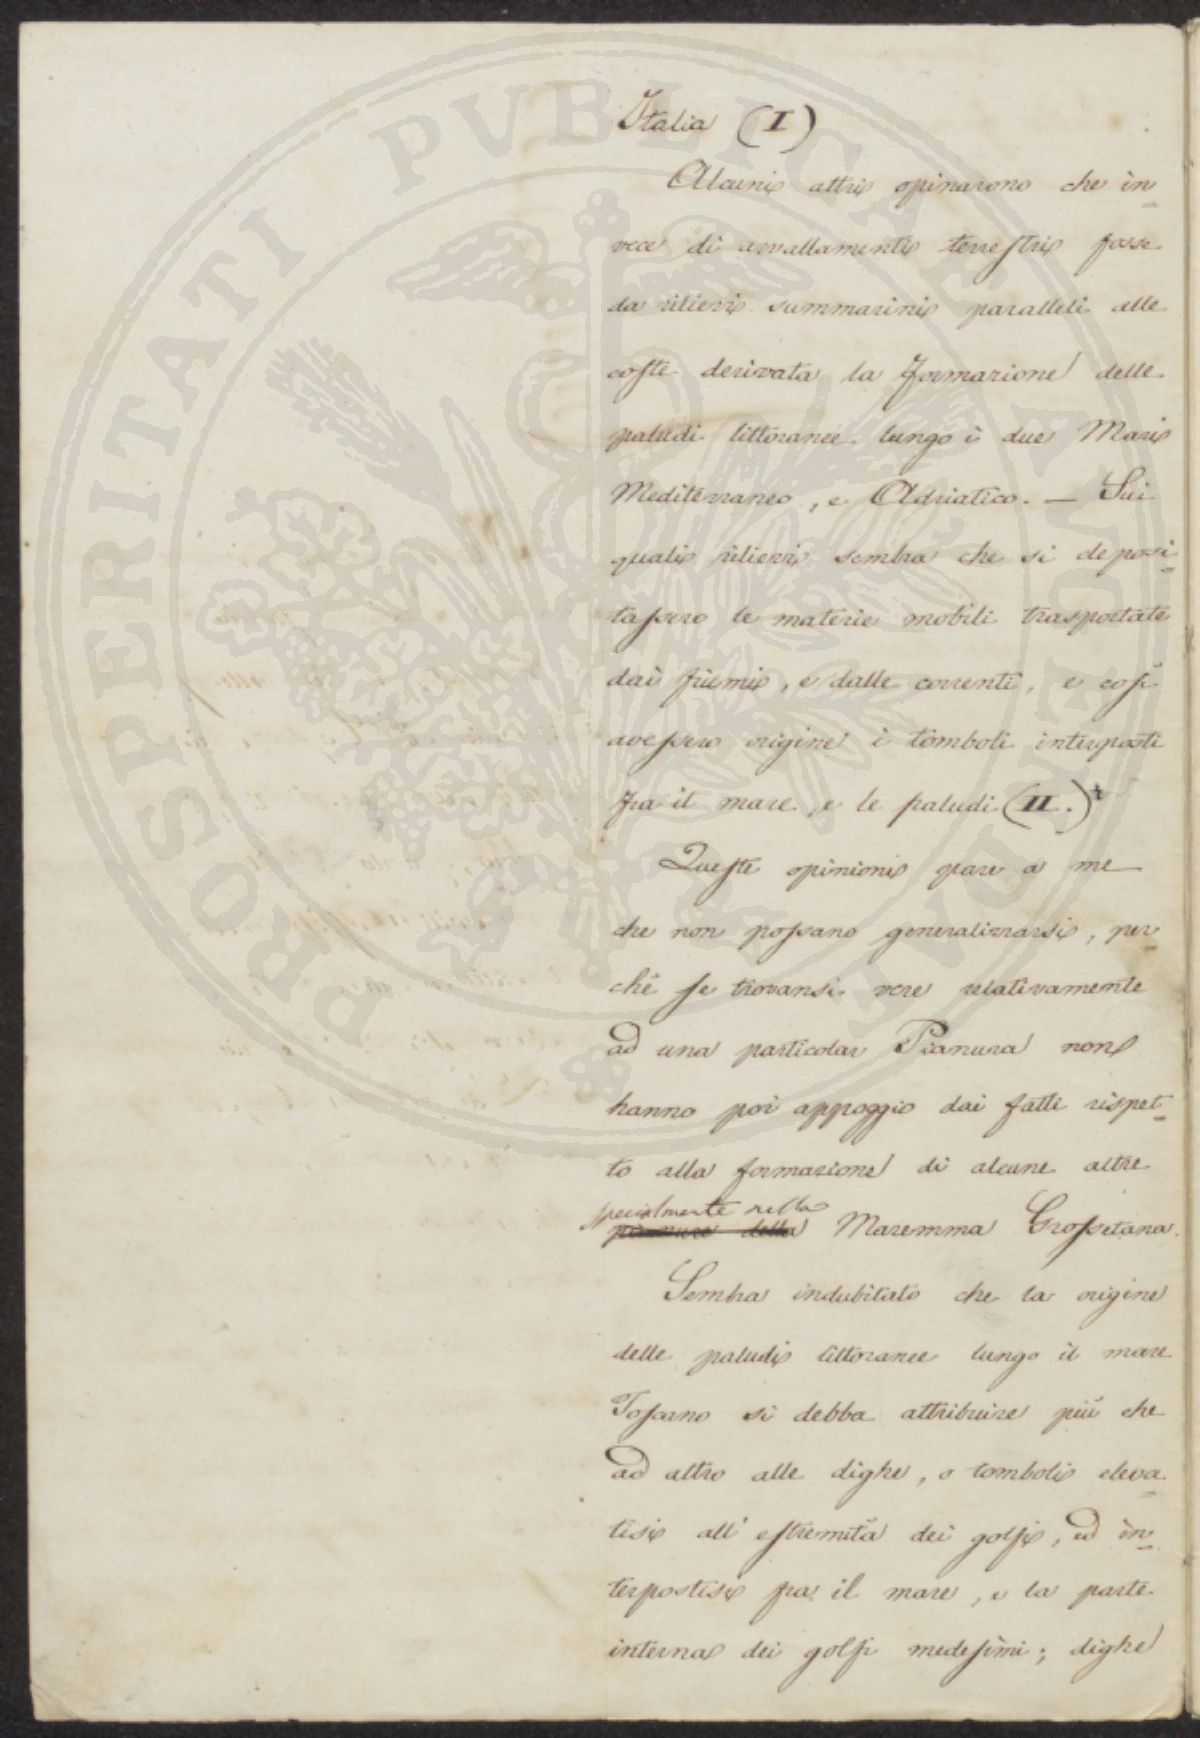 Italia (I)
Alcuni altri opinarono che in=
vece di avvallamenti terrestri fosse
da rilievi summarini paralleli alle
coste derivata la formazione delle
paludi littoranee lungo i due Mari
Mediterraneo, e Adriatico. — Sui
quali rilievi sembra che si deposi=
tassero le materie mobili trasportate
dai fiumi, e dalle correnti, e così
avessero origine i tomboli interposti
fra il mare, e le paludi (II.)
Queste opinioni pare a me
che non possano generalizzarsi, per=
chè se trovansi vere relativamente
ad una particolar Pianura non
hanno poi appoggio dai fatti rispet=
to alla formazione di alcune altre
specialmente nella
pianure della Maremma Grossetana.
Sembra indubitato che la origine
delle paludi littoranee lungo il mare
Toscano si debba attribuire più che
ad altro alle dighe, o tomboli eleva=
tisi all' estremità dei golfi, ed in=
terpostisi fra il mare, e la parte
interna dei golfi medesimi; dighe
PROSPERITATI PVBLICAE AVGENDAE